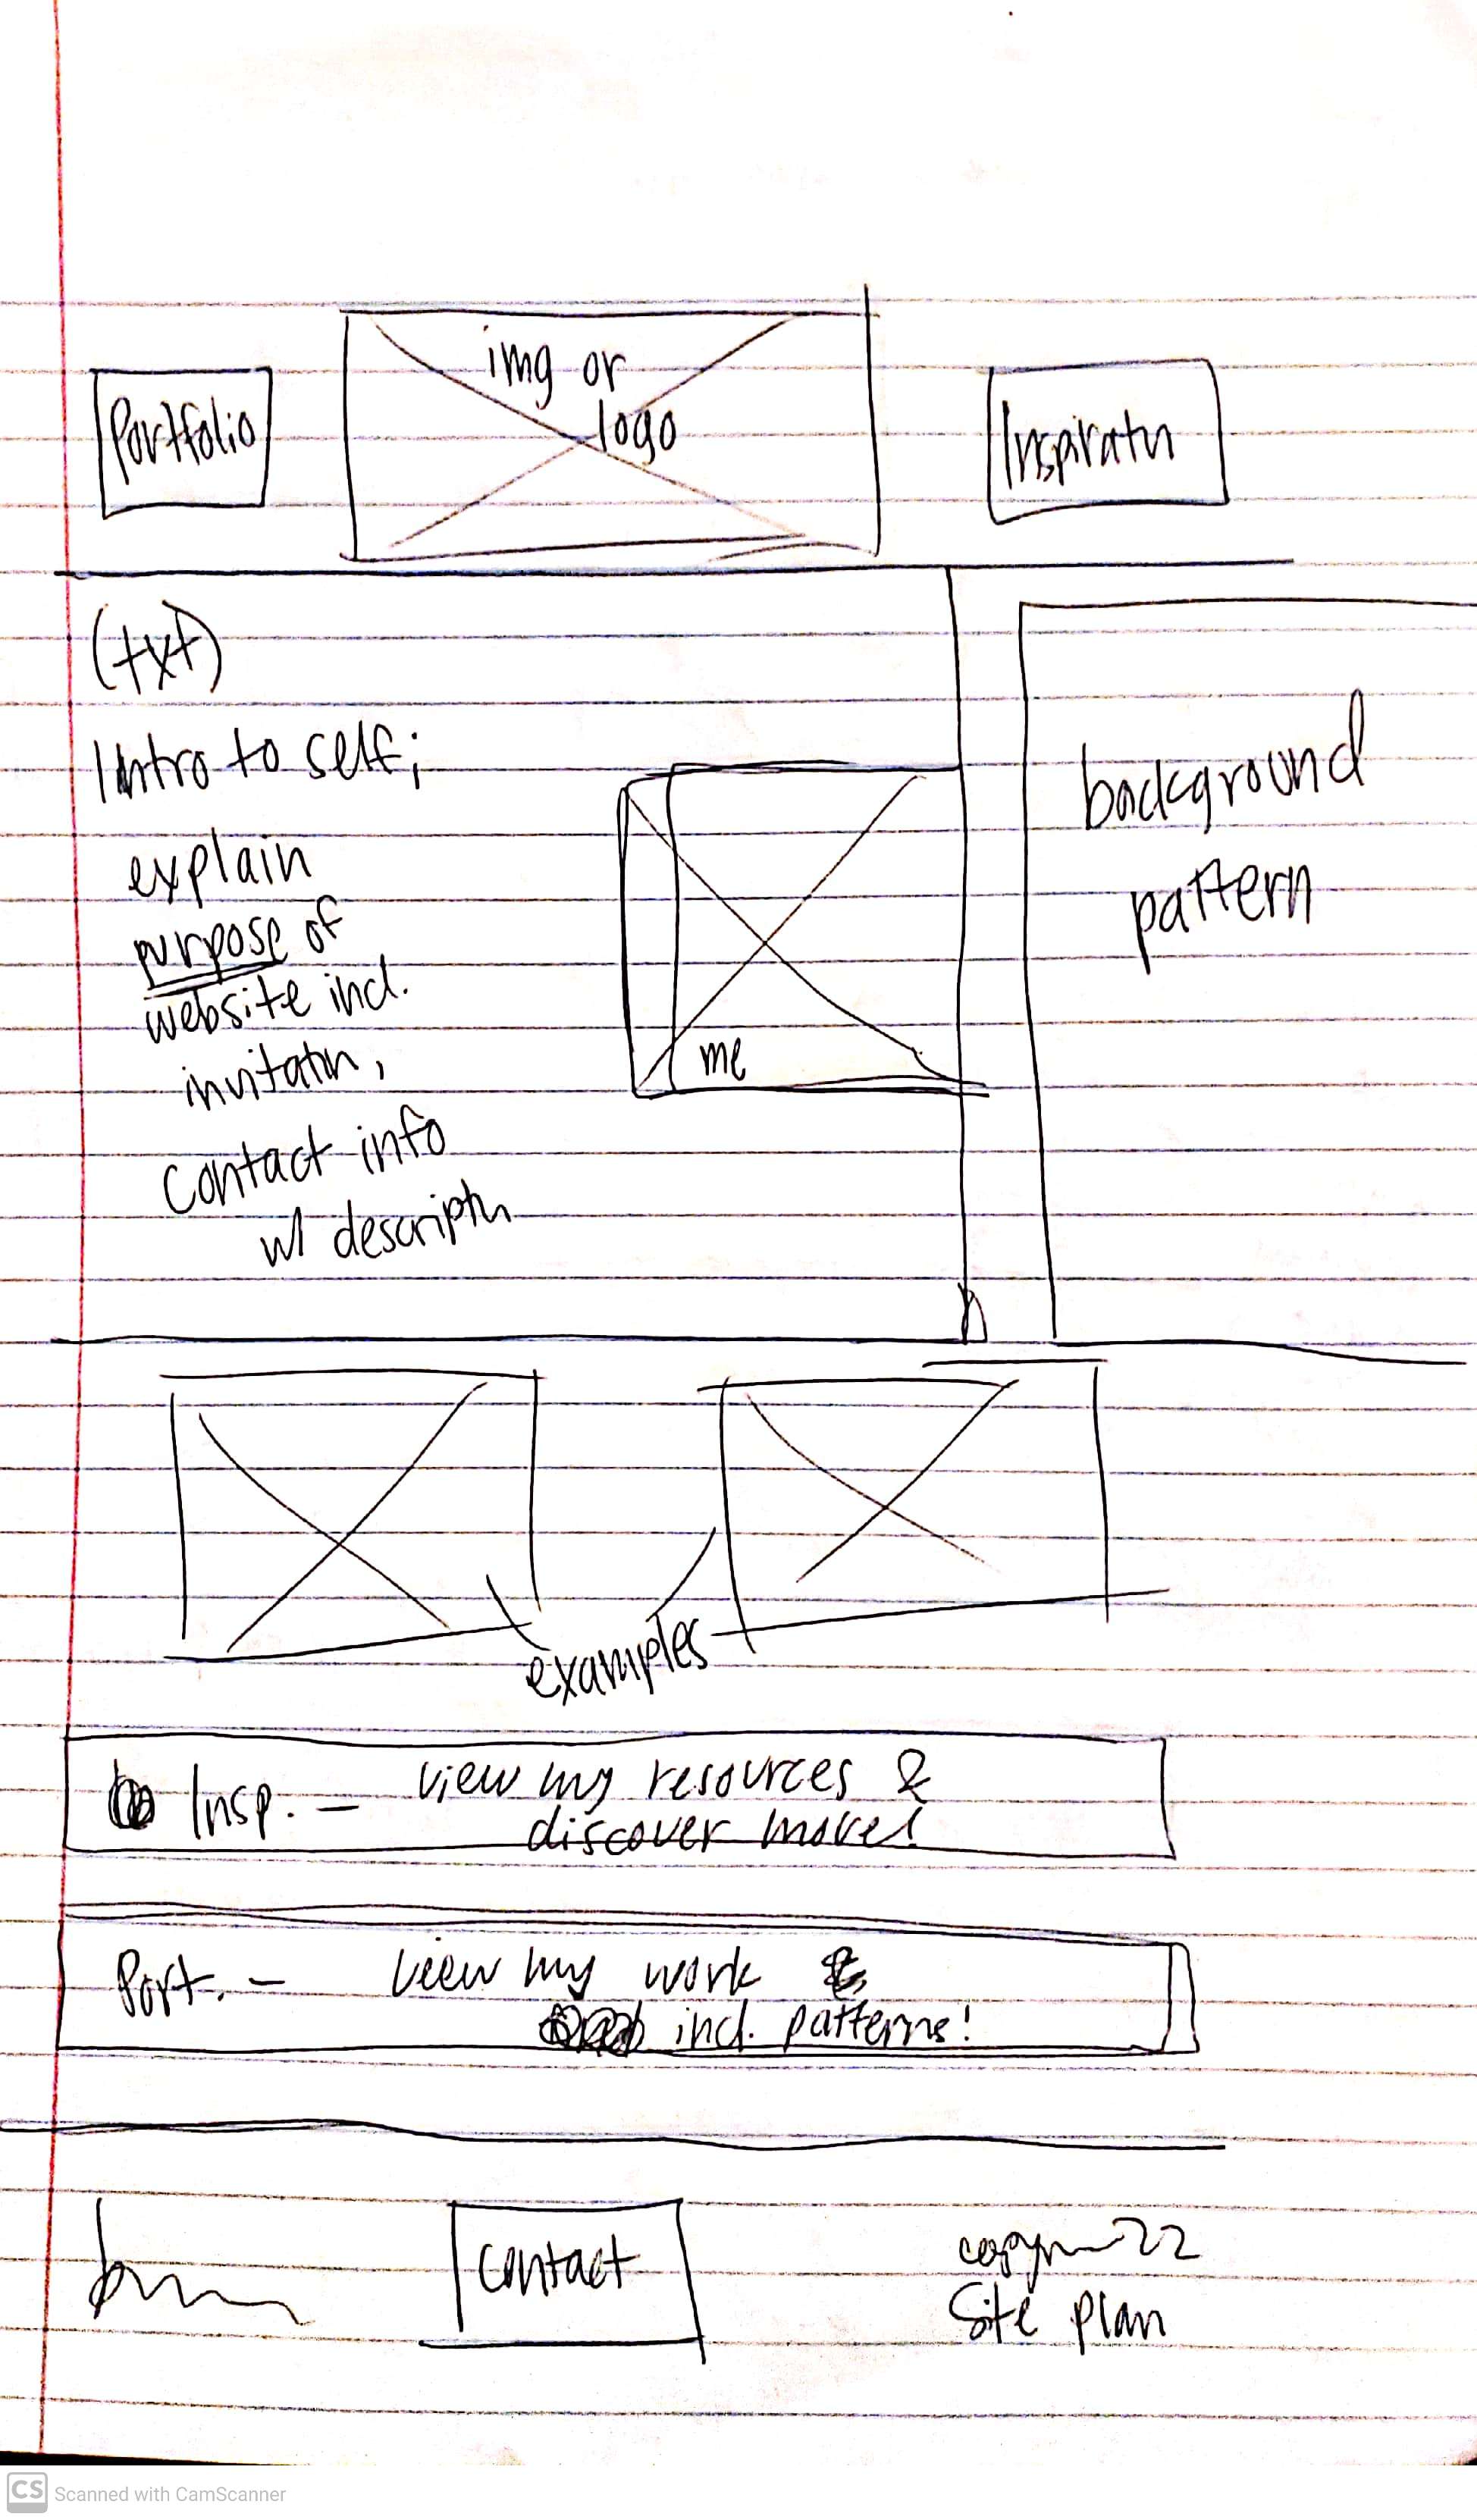 Portfolio
img or
logo
Inspiratn
(txt)
Intro to self;
explain
purpose of
website incl.
invitatn,
contact info
w/ descriptn
me
background
pattern
examples
Insp. - view my resources &
discover more!
Port. - view my work &
incl. patterns!
contact
22
Site plan
CS Scanned with CamScanner